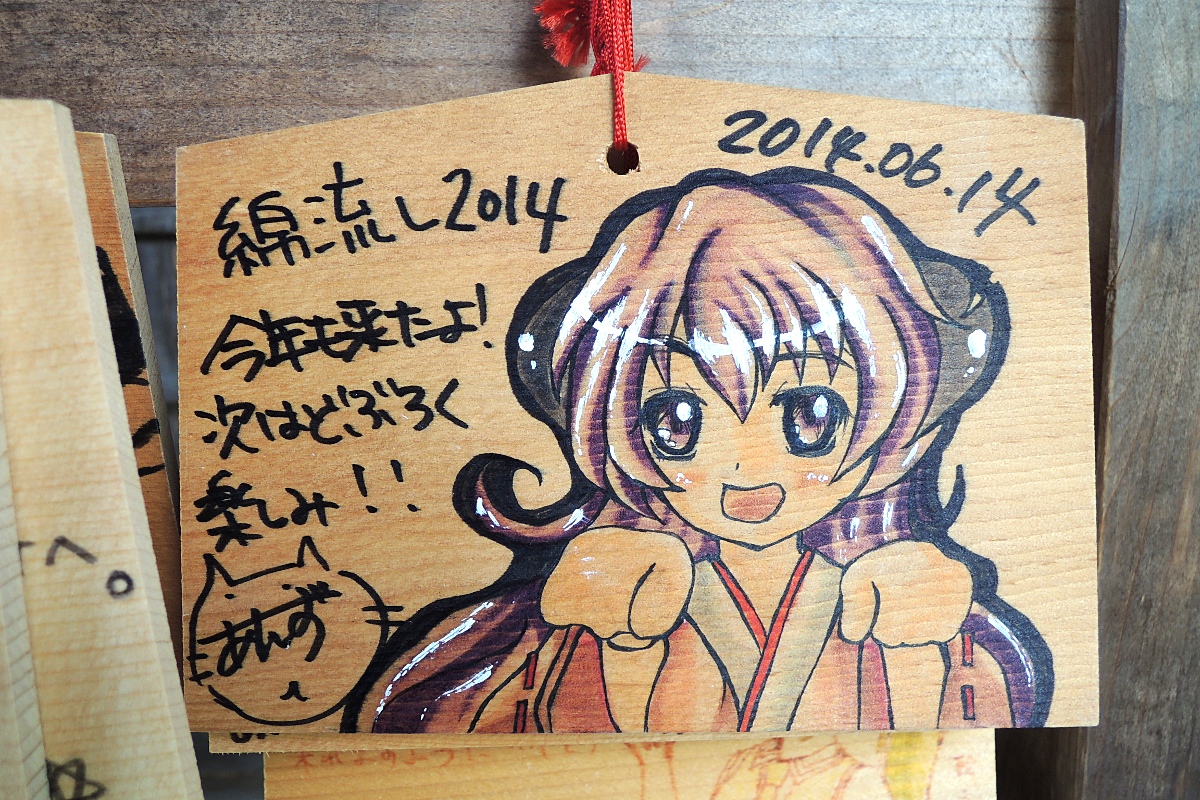 2014.06.14
綿流し2014
今年も来たよ!
次はどぶろく
楽しみ!!
あんず